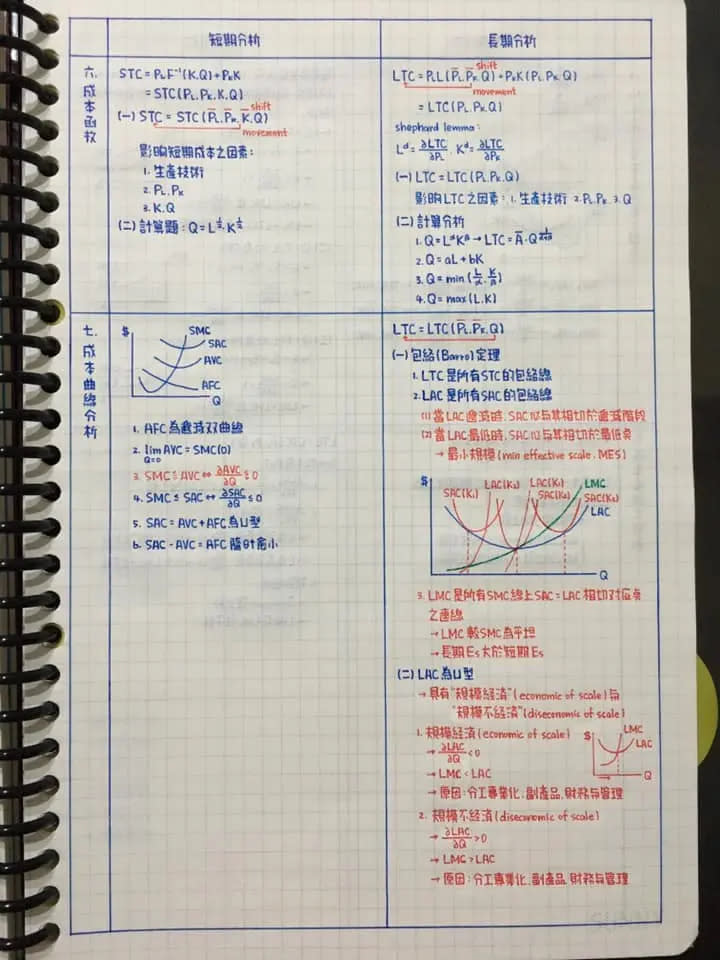 短期分析
長期分析
六、成本函數
STC = PLF⁻¹(K.Q) + PKK
= STC(PL.PK.K.Q)
(一) STC = STC(P̅L.P̅K.K̅.Q) shift
movement
影響短期成本之因素:
1. 生產技術
2. PL.PK
3. K.Q
(二) 計算題: Q = L^½.K^½
LTC = PLL(P̅L.P̅K.Q) + PKK(PL.PK.Q) shift
movement
= LTC(PL.PK.Q)
shephard lemma:
L^d = ∂LTC/∂PL . K^d = ∂LTC/∂PK
(一) LTC = LTC(PL.PK.Q)
影响LTC之因素: 1. 生產技術 2. PL.PK 3. Q
(二) 計算分析
1. Q = L^αK^β → LTC = A̅.Q^1/(α+β)
2. Q = aL + bK
3. Q = min (L/α.K/β)
4. Q = max (L.K)
七、成本曲線分析
$
SMC
SAC
AVC
AFC
Q
1. AFC為遞減双曲線
2. lim Q=0 AVC = SMC(0)
3. SMC ≦ AVC ↔ ∂AVC/∂Q ≦ 0
4. SMC ≦ SAC ↔ ∂SAC/∂Q ≦ 0
5. SAC = AVC + AFC為U型
6. SAC - AVC = AFC 隨时愈小
LTC = LTC(P̅L.P̅K.Q)
(一) 包絡(Barro)定理
1. LTC是所有STC的包絡線
2. LAC是所有SAC的包絡線
(1) 當LAC遞減時, SAC必与其相切於遞減階段
(2) 當LAC最低時, SAC必与其相切於最低点
→ 最小規模 (min effective scale. MES)
$
SAC(K₁)
LAC(K₁)
LAC(K₁)
SAC(K₂)
LMC
SAC(K₃)
LAC
Q
3. LMC是所有SMC線上SAC = LAC相切对应点
之連線
→ LMC較SMC為平坦
→ 長期Es大於短期Es
(二) LAC為U型
→ 具有"規模經濟"(economic of scale)与
"規模不經濟"(diseconomic of scale)
1. 規模經濟(economic of scale)
→ ∂LAC/∂Q < 0
→ LMC < LAC
→ 原因: 分工專業化、副產品、財務与管理
$
LMC
LAC
Q
2. 規模不經濟(diseconomic of scale)
→ ∂LAC/∂Q > 0
→ LMC > LAC
→ 原因: 分工專業化、副產品、財務与管理